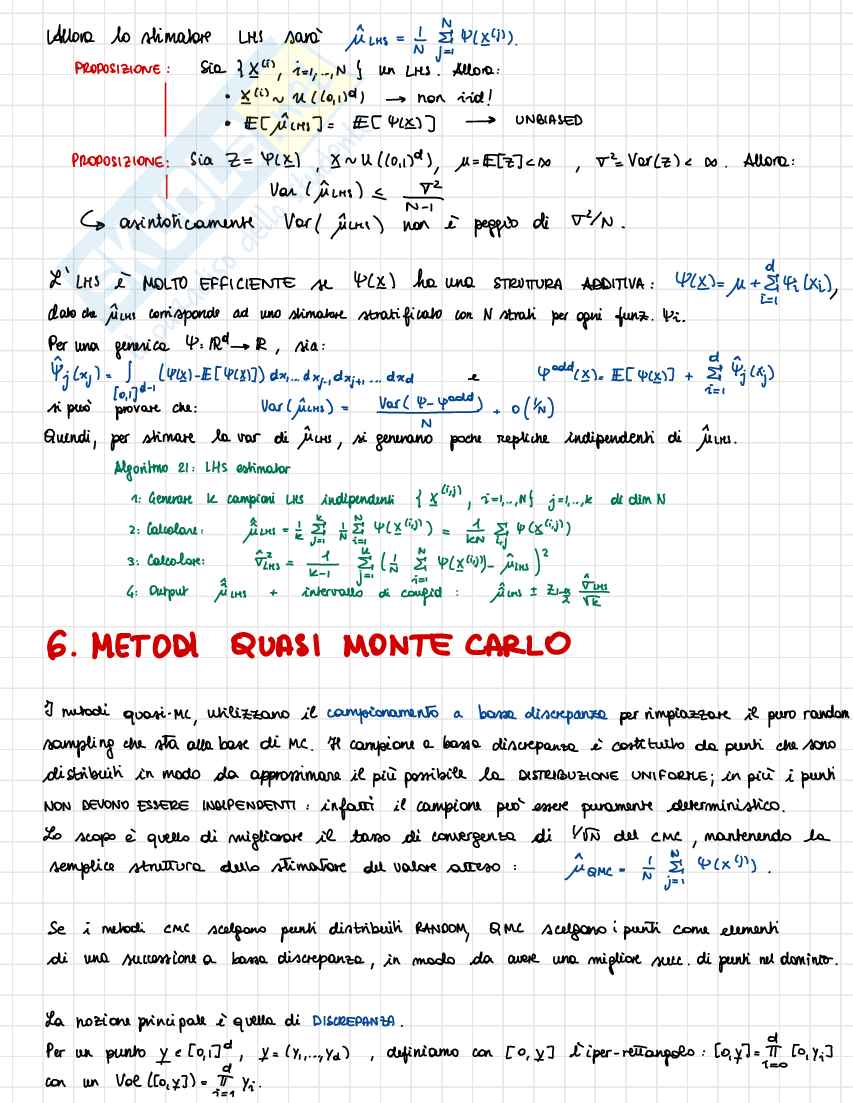 Allora lo stimatore LHS sarà μ̂_LHS = 1/N Σ_{j=1}^{N} Ψ(x^(j)).
PROPOSIZIONE: Sia {X^(i), i=1,..,N} un LHS. Allora:
• X^(i) ~ U((0,1)^d) → non iid!
• E[μ̂_LHS] = E[Ψ(X)] → UNBIASED
PROPOSIZIONE: Sia Z = Ψ(X), X ~ U((0,1)^d), μ = E[Z] < ∞, σ² = Var(Z) < ∞. Allora:
Var(μ̂_LHS) ≤ σ²/(N-1)
↪ asintoticamente Var(μ̂_LHS) non è peggio di σ²/N.
L'LHS è MOLTO EFFICIENTE se Ψ(X) ha una STRUTTURA ADDITIVA: Ψ(X) = μ + Σ_{i=1}^{d} Ψ_i(x_i),
dato che μ̂_LHS corrisponde ad uno stimatore stratificato con N strati per ogni funz. Ψ_i.
Per una generica Ψ: R^d → R, sia:
Ψ̂_j(x_j) = ∫_{[0,1]^{d-1}} (Ψ(X) - E[Ψ(X)]) dx_1... dx_{j-1}, dx_{j+1}, ... dx_d e φ^add(X) = E[Ψ(X)] + Σ_{i=1}^{d} Ψ̂_j(x_j)
si può provare che: Var(μ̂_LHS) = Var(Ψ - φ^add)/N + o(1/N)
Quindi, per stimare la var di μ̂_LHS, si generano poche repliche indipendenti di μ̂_LHS.
Algoritmo 21: LHS estimator
1: Generare k campioni LHS indipendenti {X^(i,j), i=1,..,N} j=1,..,k di dim N
2: Calcolare: μ̂̂_LHS = 1/k Σ_{j=1}^{k} 1/N Σ_{i=1}^{N} Ψ(X^(i,j)) = 1/(kN) Σ_{i,j} Ψ(X^(i,j))
3: Calcolare: σ̂²_LHS = 1/(k-1) Σ_{j=1}^{k} (1/N Σ_{i=1}^{N} Ψ(X^(i,j)) - μ̂̂_LHS)²
4: Output μ̂̂_LHS + intervallo di confid: μ̂̂_LHS ± z_{1-α/2} σ̂_LHS/√k
6. METODI QUASI MONTE CARLO
I metodi quasi-MC, utilizzano il campionamento a bassa discrepanza per rimpiazzare il puro random
sampling che sta alla base di MC. Il campione a bassa discrepanza è costituito da punti che sono
distribuiti in modo da approssimare il più possibile la DISTRIBUZIONE UNIFORME; in più i punti
NON DEVONO ESSERE INDIPENDENTI: infatti il campione può essere puramente deterministico.
Lo scopo è quello di migliorare il tasso di convergenza di 1/√N del CMC, mantenendo la
semplice struttura dello stimatore del valore atteso: μ̂_QMC = 1/N Σ_{j=1}^{N} Ψ(x^(j)).
Se i metodi CMC scelgono punti distribuiti RANDOM, QMC scelgono i punti come elementi
di una successione a bassa discrepanza, in modo da avere una migliore succ. di punti nel dominio.
La nozione principale è quella di DISCREPANZA.
Per un punto y ∈ [0,1]^d, y = (y_1,...,y_d), definiamo con [0,y] l'iper-rettangolo: [0,y] = Π_{i=0}^{d} [0,y_i]
con un Vol([0,y]) = Π_{i=1}^{d} y_i.